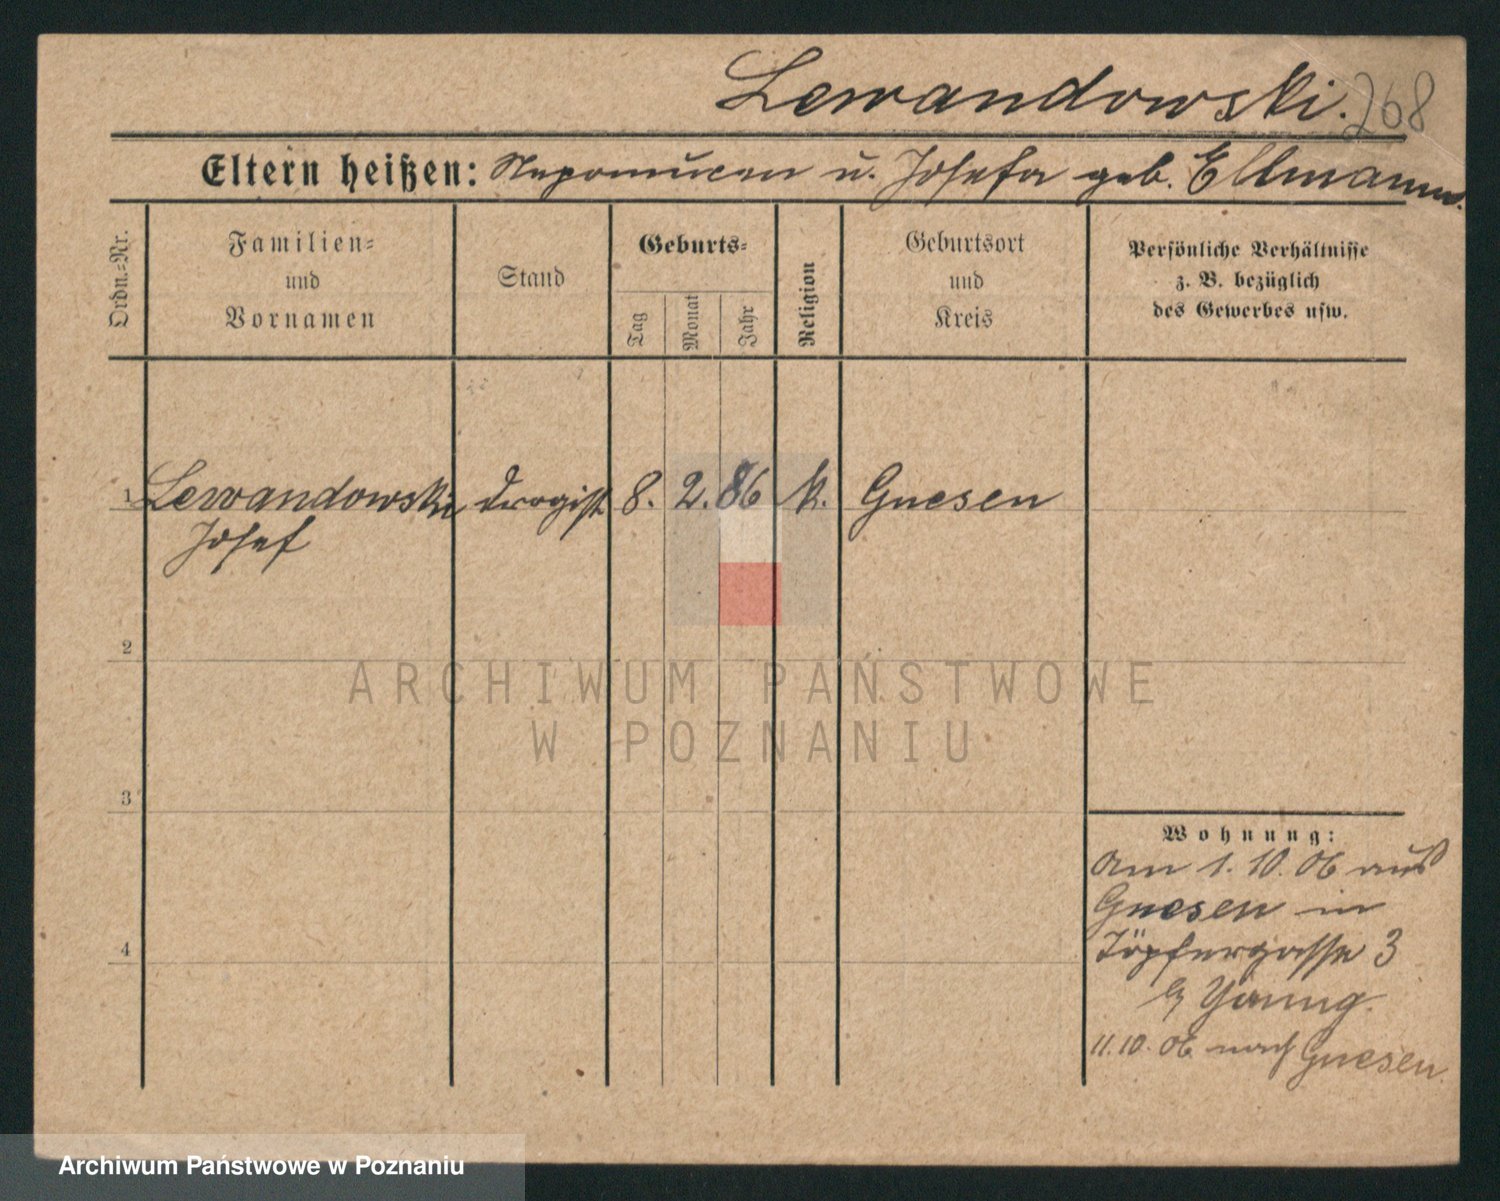 Lewandowski. 268
Eltern heißen: Nepomucen u. Josefa geb. Ellmann.
Ordn.=Nr.
Familien=
und
Vornamen
Stand
Geburts=
Tag
Monat
Jahr
Religion
Geburtsort
und
Kreis
Persönliche Verhältnisse
z. B. bezüglich
des Gewerbes usw.
1 Lewandowski Drogist 8. 2. 86 k. Gnesen
Josef
2
ARCHIWUM PAŃSTWOWE
W POZNANIU
3
Wohnung:
Am 1.10.06 aus
Gnesen in
Töpfergasse 3
4
11.10.06 nach Gnesen.
Archiwum Państwowe w Poznaniu